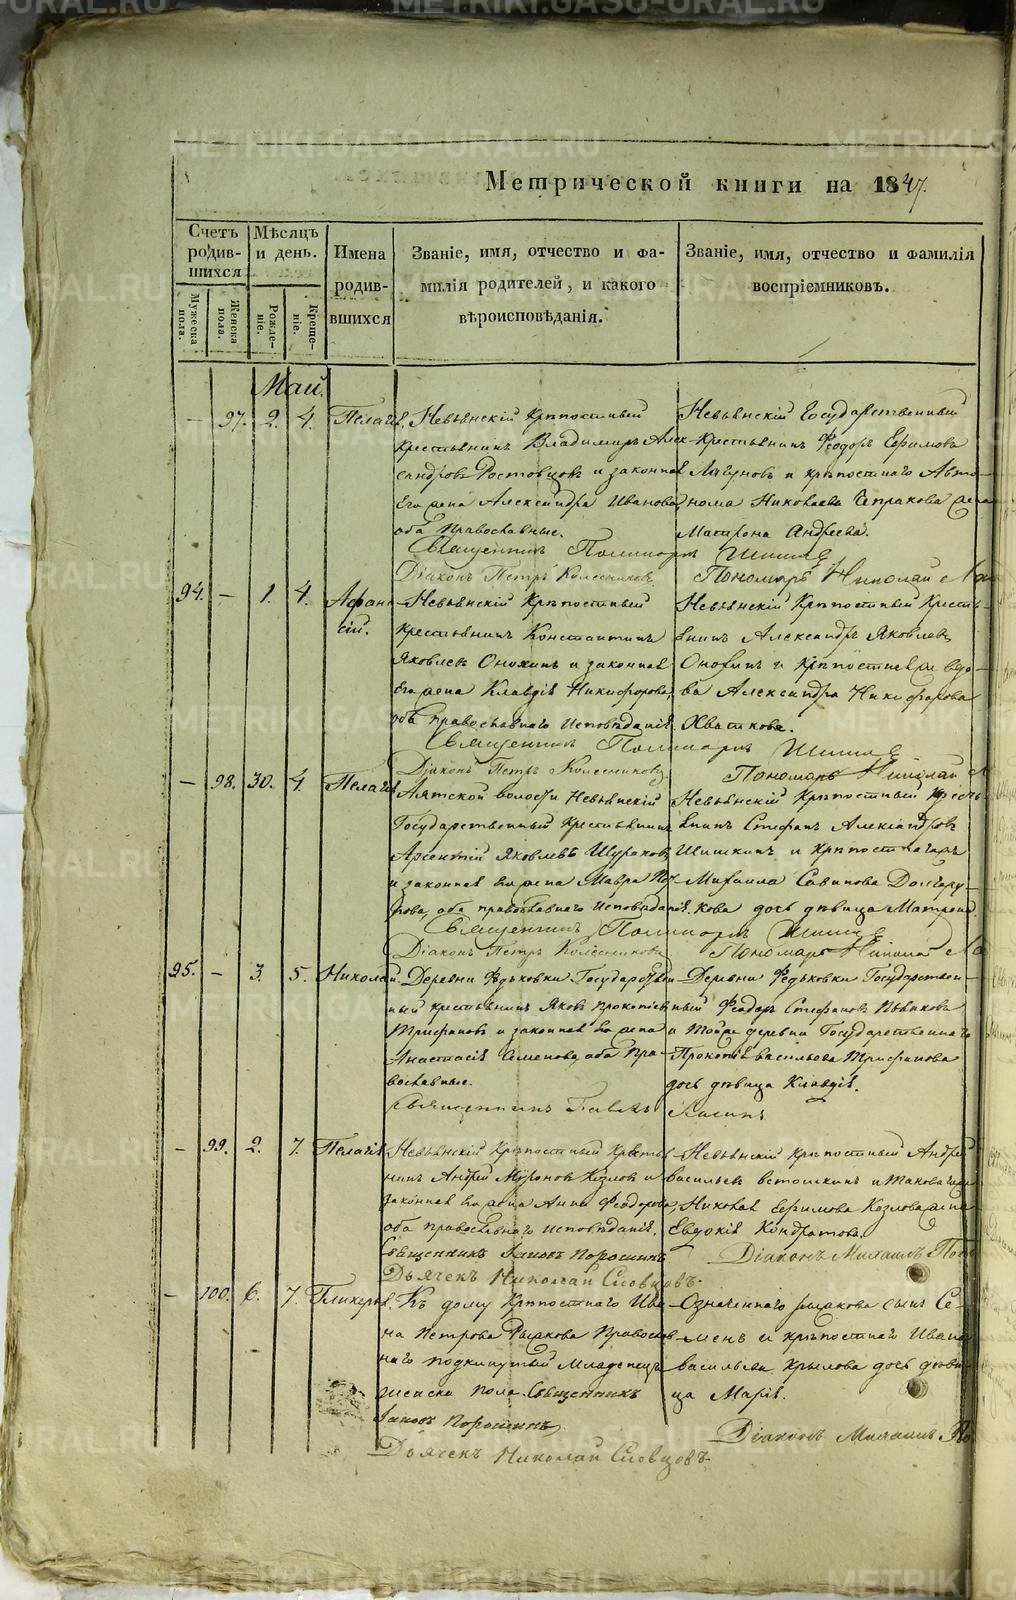 Метрической книги на 1847.
Счетъ родившихся
Мѣсяцъ и день.
Имена родившихся
Званіе, имя, отчество и фамилія родителей, и какого вѣроисповѣданія.
Званіе, имя, отчество и фамилія воспріемниковъ.
Мужеска пола.
Женска пола.
Рожденіе.
Крещеніе.
Май.
— 97. 2. 4. Пелагія
Невьянскій Крѣпостный
крестьянинъ Владиміръ Алек-
сандровъ Ростовцовъ и законная
Его жена Александра Иванова,
оба Православные.
Невьянскій Государственный
Крестьянинъ Феодоръ Ефимовъ
Лагуновъ и крѣпостнаго Авто-
нома Николаева Сепракова жена
Матрона Андреева.
Священникъ Поликарпъ
Діаконъ Петръ Колесниковъ
Пономарь Николай
94. — 1. 4. Афана-
сій.
Невьянскій Крѣпостный
Крестьянинъ Константинъ
Яковлевъ Онохинъ и законная
Его жена Клавдія Никифорова,
оба православнаго Исповѣданія.
Невьянскій Крѣпостный Кресть-
янинъ Александръ Яковлевъ
Онохинъ и Крѣпостная вдо-
ва Александра Никифорова
Хваткова.
Священникъ Поликарпъ
Діаконъ Петръ Колесниковъ
Пономарь Николай
— 98. 30. 4. Пелагія
Аятской волости Невьянскій
Государственный Крестьянинъ
Арсентій Яковлевъ Шураковъ
и законная его жена Мавра
оба православнаго Исповѣданія.
Невьянскій Крѣпостный Кресть-
янинъ Стефанъ Александровъ
Шишкинъ и Крѣпостнаго
Михаила Савинова Долгару-
кова дочь дѣвица Матрона.
Священникъ Поликарпъ
Діаконъ Петръ Колесниковъ
Пономарь Николай
95. — 3. 5. Николай.
Деревни Федьковки Государствен-
ный крестьянинъ Яковъ Прокопіевъ
Трифановъ и законная его жена
Анастасія Семенова, оба пра-
вославные.
Деревни Федьковки Государствен-
ный Феодоръ Стефановъ
и Тойже деревни Государственнаго
Прокопія Васильева Трифанова
дочь дѣвица Клавдія.
Священникъ Павелъ
— 99. 2. 7. Пелагія
Невьянскій Крѣпостный Крестья-
нинъ Андрей Мироновъ Козловъ и
законная его жена Анна Феодорова,
оба православнаго исповѣданія.
Невьянскій крѣпостный Андрей
Васильевъ
Николая Ефимова Козлова жена
Евдокія Кондратова.
Священникъ Іаковъ Порошинъ
Діаконъ Михаилъ
Дьячекъ Николай Словцовъ.
— 100. 6. 7. Гликерія.
Къ дому Крѣпостнаго Ива-
на Петрова Рыжакова Православ-
наго подкинутый Младенецъ
женска пола. Священникъ
Іаковъ Порошинъ
Означеннаго Рыжакова сынъ Се-
менъ и крѣпостнаго Ивана
Васильева Крылова дочь дѣви-
ца Марія.
Діаконъ Михаилъ
Дьячекъ Николай Словцовъ.
METRIKI.GASO-URAL.RU